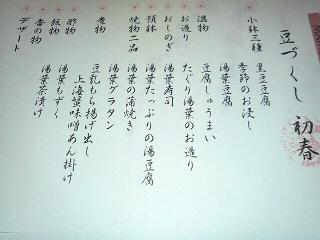 豆づくし 初春
小鉢三種 黒豆豆腐
季節のお浸し
湯葉豆腐
温物 豆腐しゅうまい
お造り たぐり湯葉のお造り
おしのぎ 湯葉寿司
預鉢 湯葉たっぷりの湯豆腐
焼物二品 湯葉の蒲焼き
湯葉グラタン
煮物 豆乳もち揚げ出し
上海蟹味噌あん掛け
酢物 湯葉もずく
飯物 湯葉茶漬け
香の物
デザート